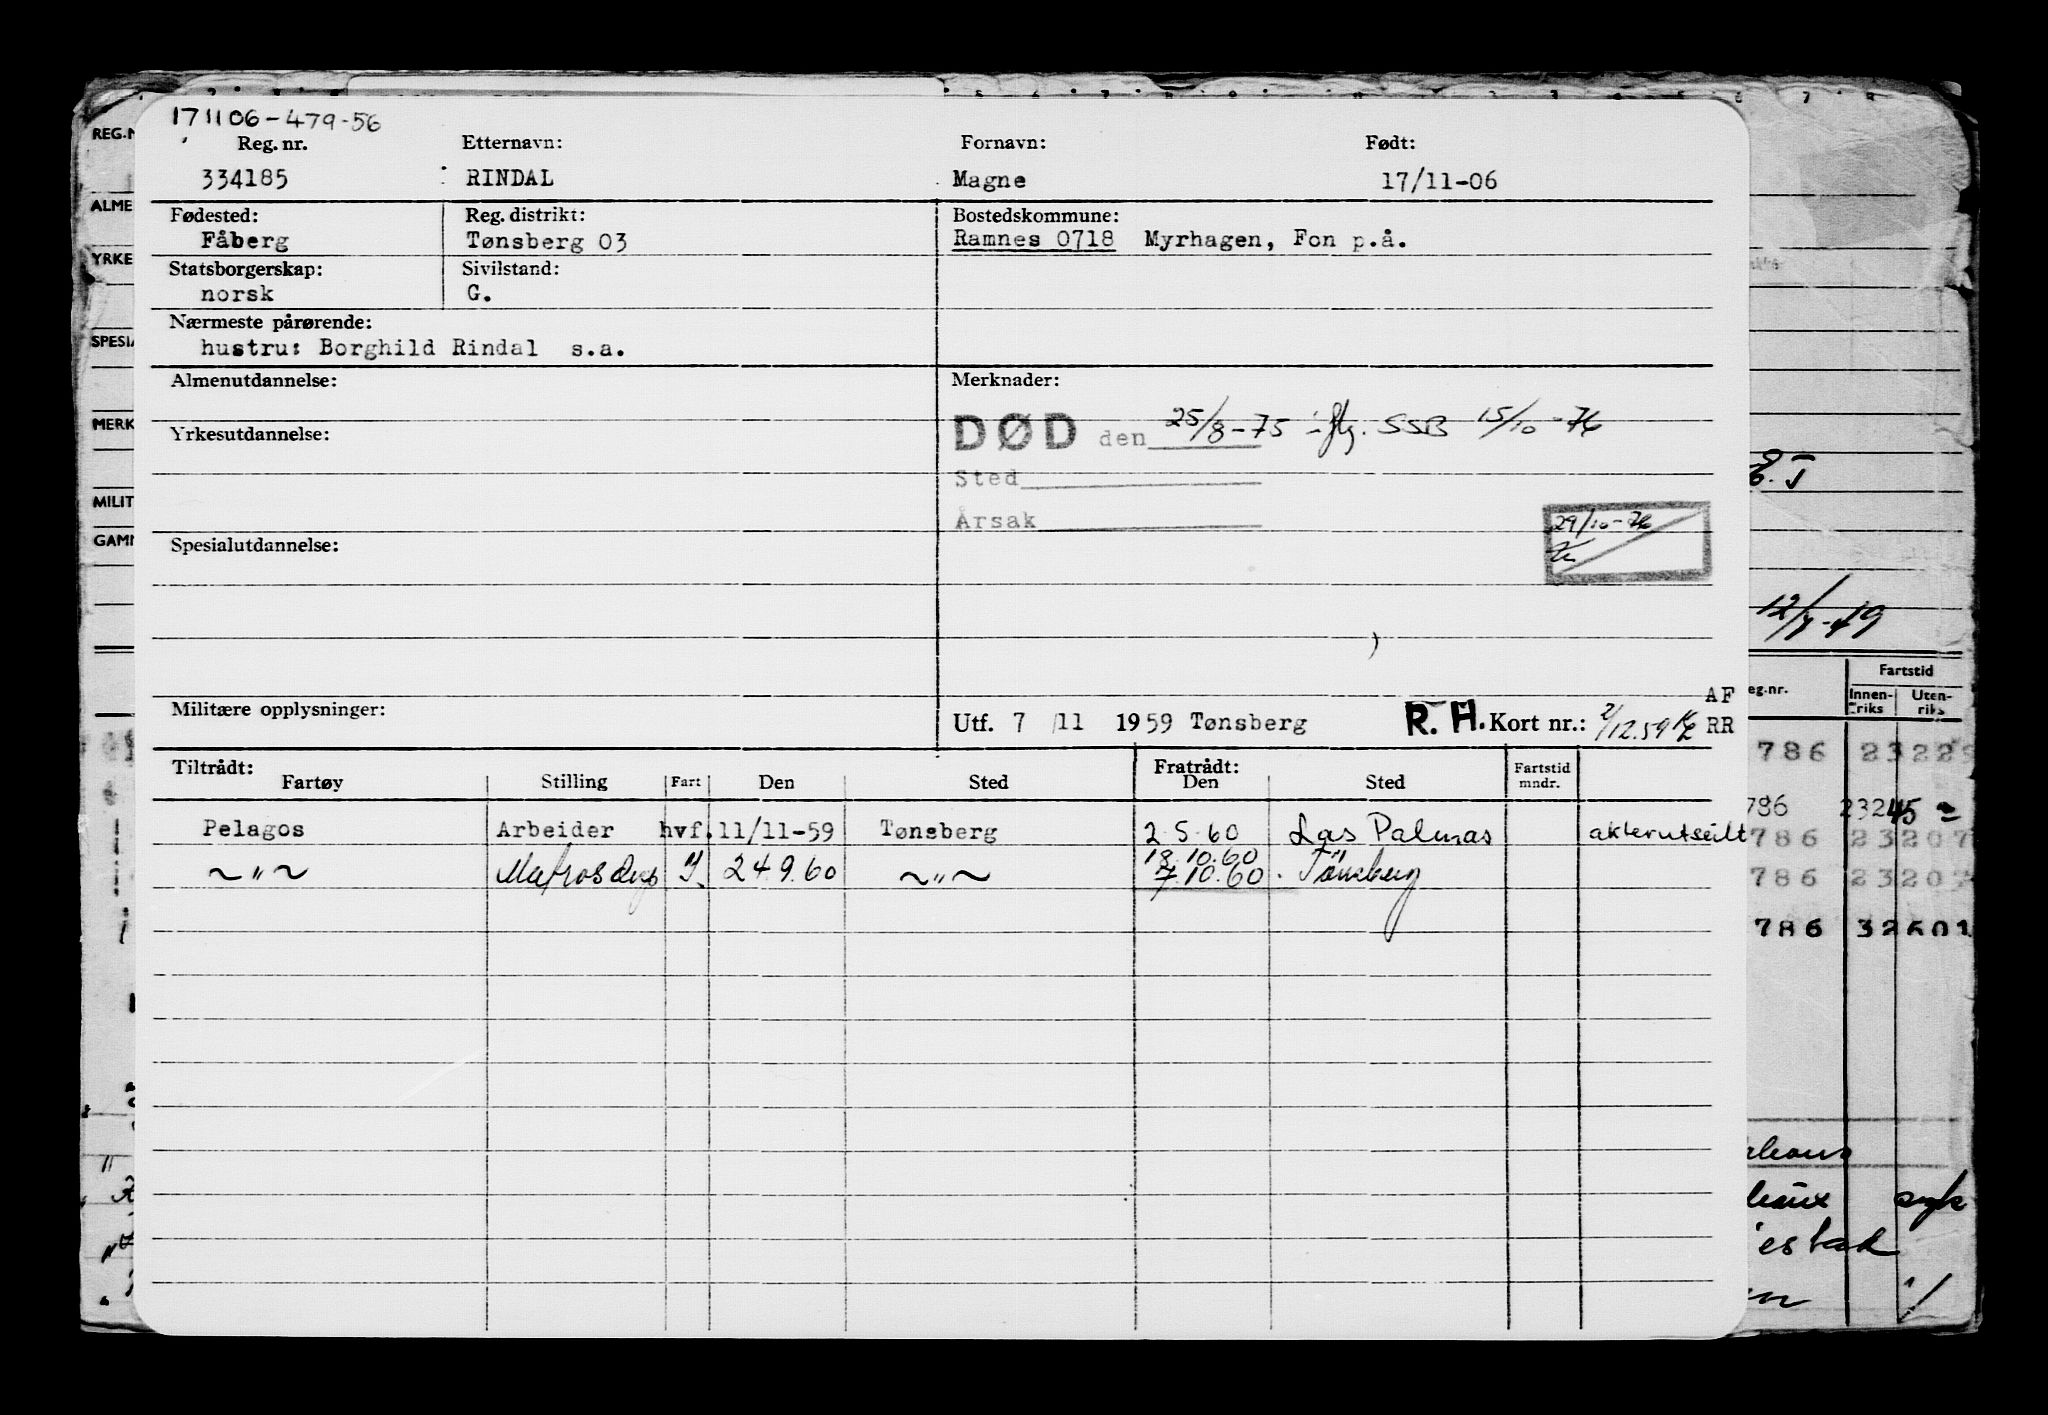 171106-479-56
REG.N
Reg. nr. Etternavn: Fornavn: Født:
334185 RINDAL Magne 17/11-06
ALME
Fødested: Reg. distrikt: Bostedskommune:
Fåberg Tønsberg 03 Ramnes 0718 Myrhagen, Fon p.å.
YRKE
Statsborgerskap: Sivilstand:
norsk G.
Nærmeste pårørende:
SPESIA
hustru: Borghild Rindal s.a.
Almenutdannelse: Merknader:
MERK
DØD den 25/8-75 iflg. SSB 15/10-76
Yrkesutdannelse:
Sted
MILIT
Årsak
29/10-76
GAMM
Spesialutdannelse:
12/7-49
Fartstid
eg.nr. Innenriks Utenriks
AF
Militære opplysninger:
Utf. 7/11 1959 Tønsberg R. H. Kort nr.: 2/12.59 RR
786 23229
Tiltrådt: Fratrådt:
Fartøy Stilling Fart Den Sted Den Sted Fartstid mndr.
786 23245
Pelagos Arbeider hvf. 11/11-59 Tønsberg 2.5.60 Las Palmas akterutseilt
786 23207
18.10.60
~"~ Matros dags 24.9.60 ~"~ 7.10.60. Tønsberg
786 2320
786 32601
syk